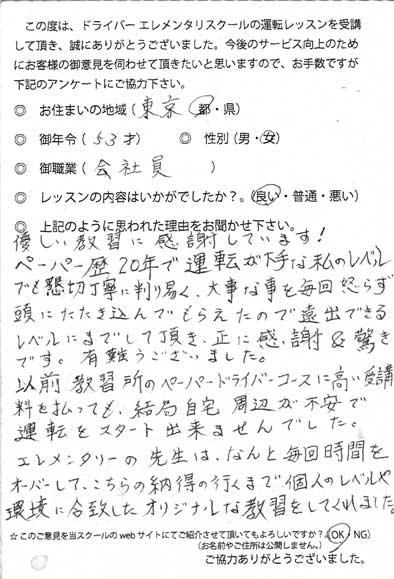 この度は、ドライバー エレメンタリスクールの運転レッスンを受講
して頂き、誠にありがとうございました。今後のサービス向上のため
にお客様の御意見を伺わせて頂きたいと思いますので、お手数ですが
下記のアンケートにご協力下さい。
◎ お住まいの地域（東京 都・県）
◎ 御年令（53才） ◎ 性別（男・女）
◎ 御職業（会社員 ）
◎ レッスンの内容はいかがでしたか？。（良い・普通・悪い）
◎ 上記のように思われた理由をお聞かせ下さい。
優しい教習に感謝しています！
ペーパー歴20年で運転が下手な私のレベル
でも懇切丁寧に判り易く、大事な事を毎回怒らず
頭にたたき込んでもらえたので遠出できる
レベルにまでして頂き、正に感謝&驚き
です。有難うございました。
以前教習所のペーパードライバーコースに高い受講
料を払っても、結局自宅周辺が不安で
運転をスタート出来ませんでした。
エレメンタリーの先生は、なんと毎回時間を
オーバーして、こちらの納得の行くまで個人のレベルや
環境に合致したオリジナルな教習をしてくれました
☆このご意見を当スクールのwebサイトにてご紹介させて頂いてもよろしいですか？（OK・NG）
（お名前やご住所は公開しません。）
ご協力ありがとうございました。